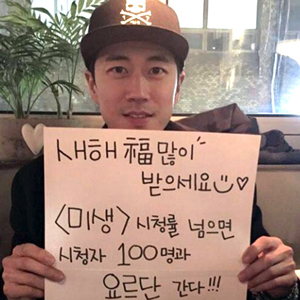 새해 福 많이
받으세요
<미생> 시청률 넘으면
시청자 100명과
요르단 간다!!!